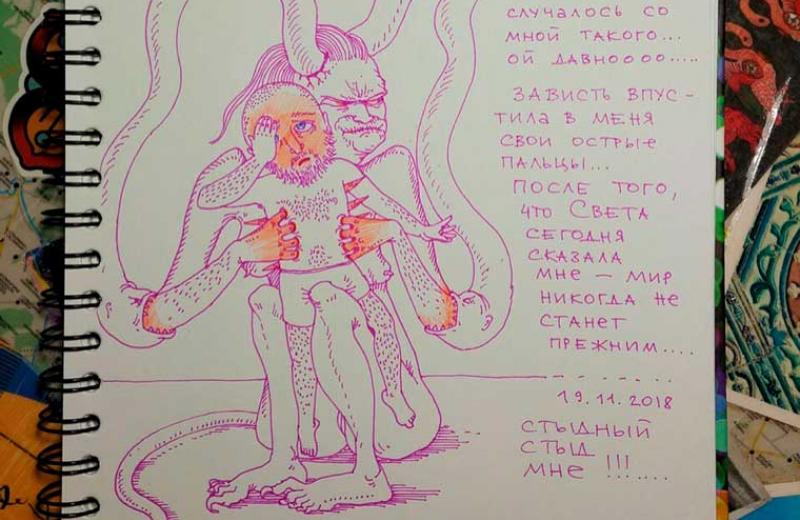 СЛУЧАЛОСЬ СО
МНОЙ ТАКОГО...
ОЙ ДАВНОООО.....
ЗАВИСТЬ ВПУС-
ТИЛА В МЕНЯ
СВОИ ОСТРЫЕ
ПАЛЬЦЫ...
ПОСЛЕ ТОГО,
ЧТО СВЕТА
СЕГОДНЯ
СКАЗАЛА
МНЕ – МИР
НИКОГДА НЕ
СТАНЕТ
ПРЕЖНИМ....
19.11.2018
СТЫДНЫЙ
СТЫД
МНЕ !!!.....